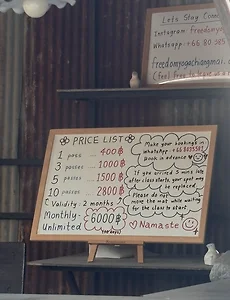 Lets Stay Conn
Instagram Freedomyo
Whatsapp: +66 80 385
freedomyogachiangmai.c
(feel free to
PRICE LIST
1 pass ... 400฿
3 passes ... 1000฿
5 passes 1500฿
10 passes 2800฿
(Validity: 2 months)
Monthly- 6000฿
Unlimited
Make your bookings in
whatsApp: +66 803855
Book in advance
If you arrived 5 mins late
after class starts, your spot may
be replaced
Please do not
move the mat while waiting
for the class to start
Namaste